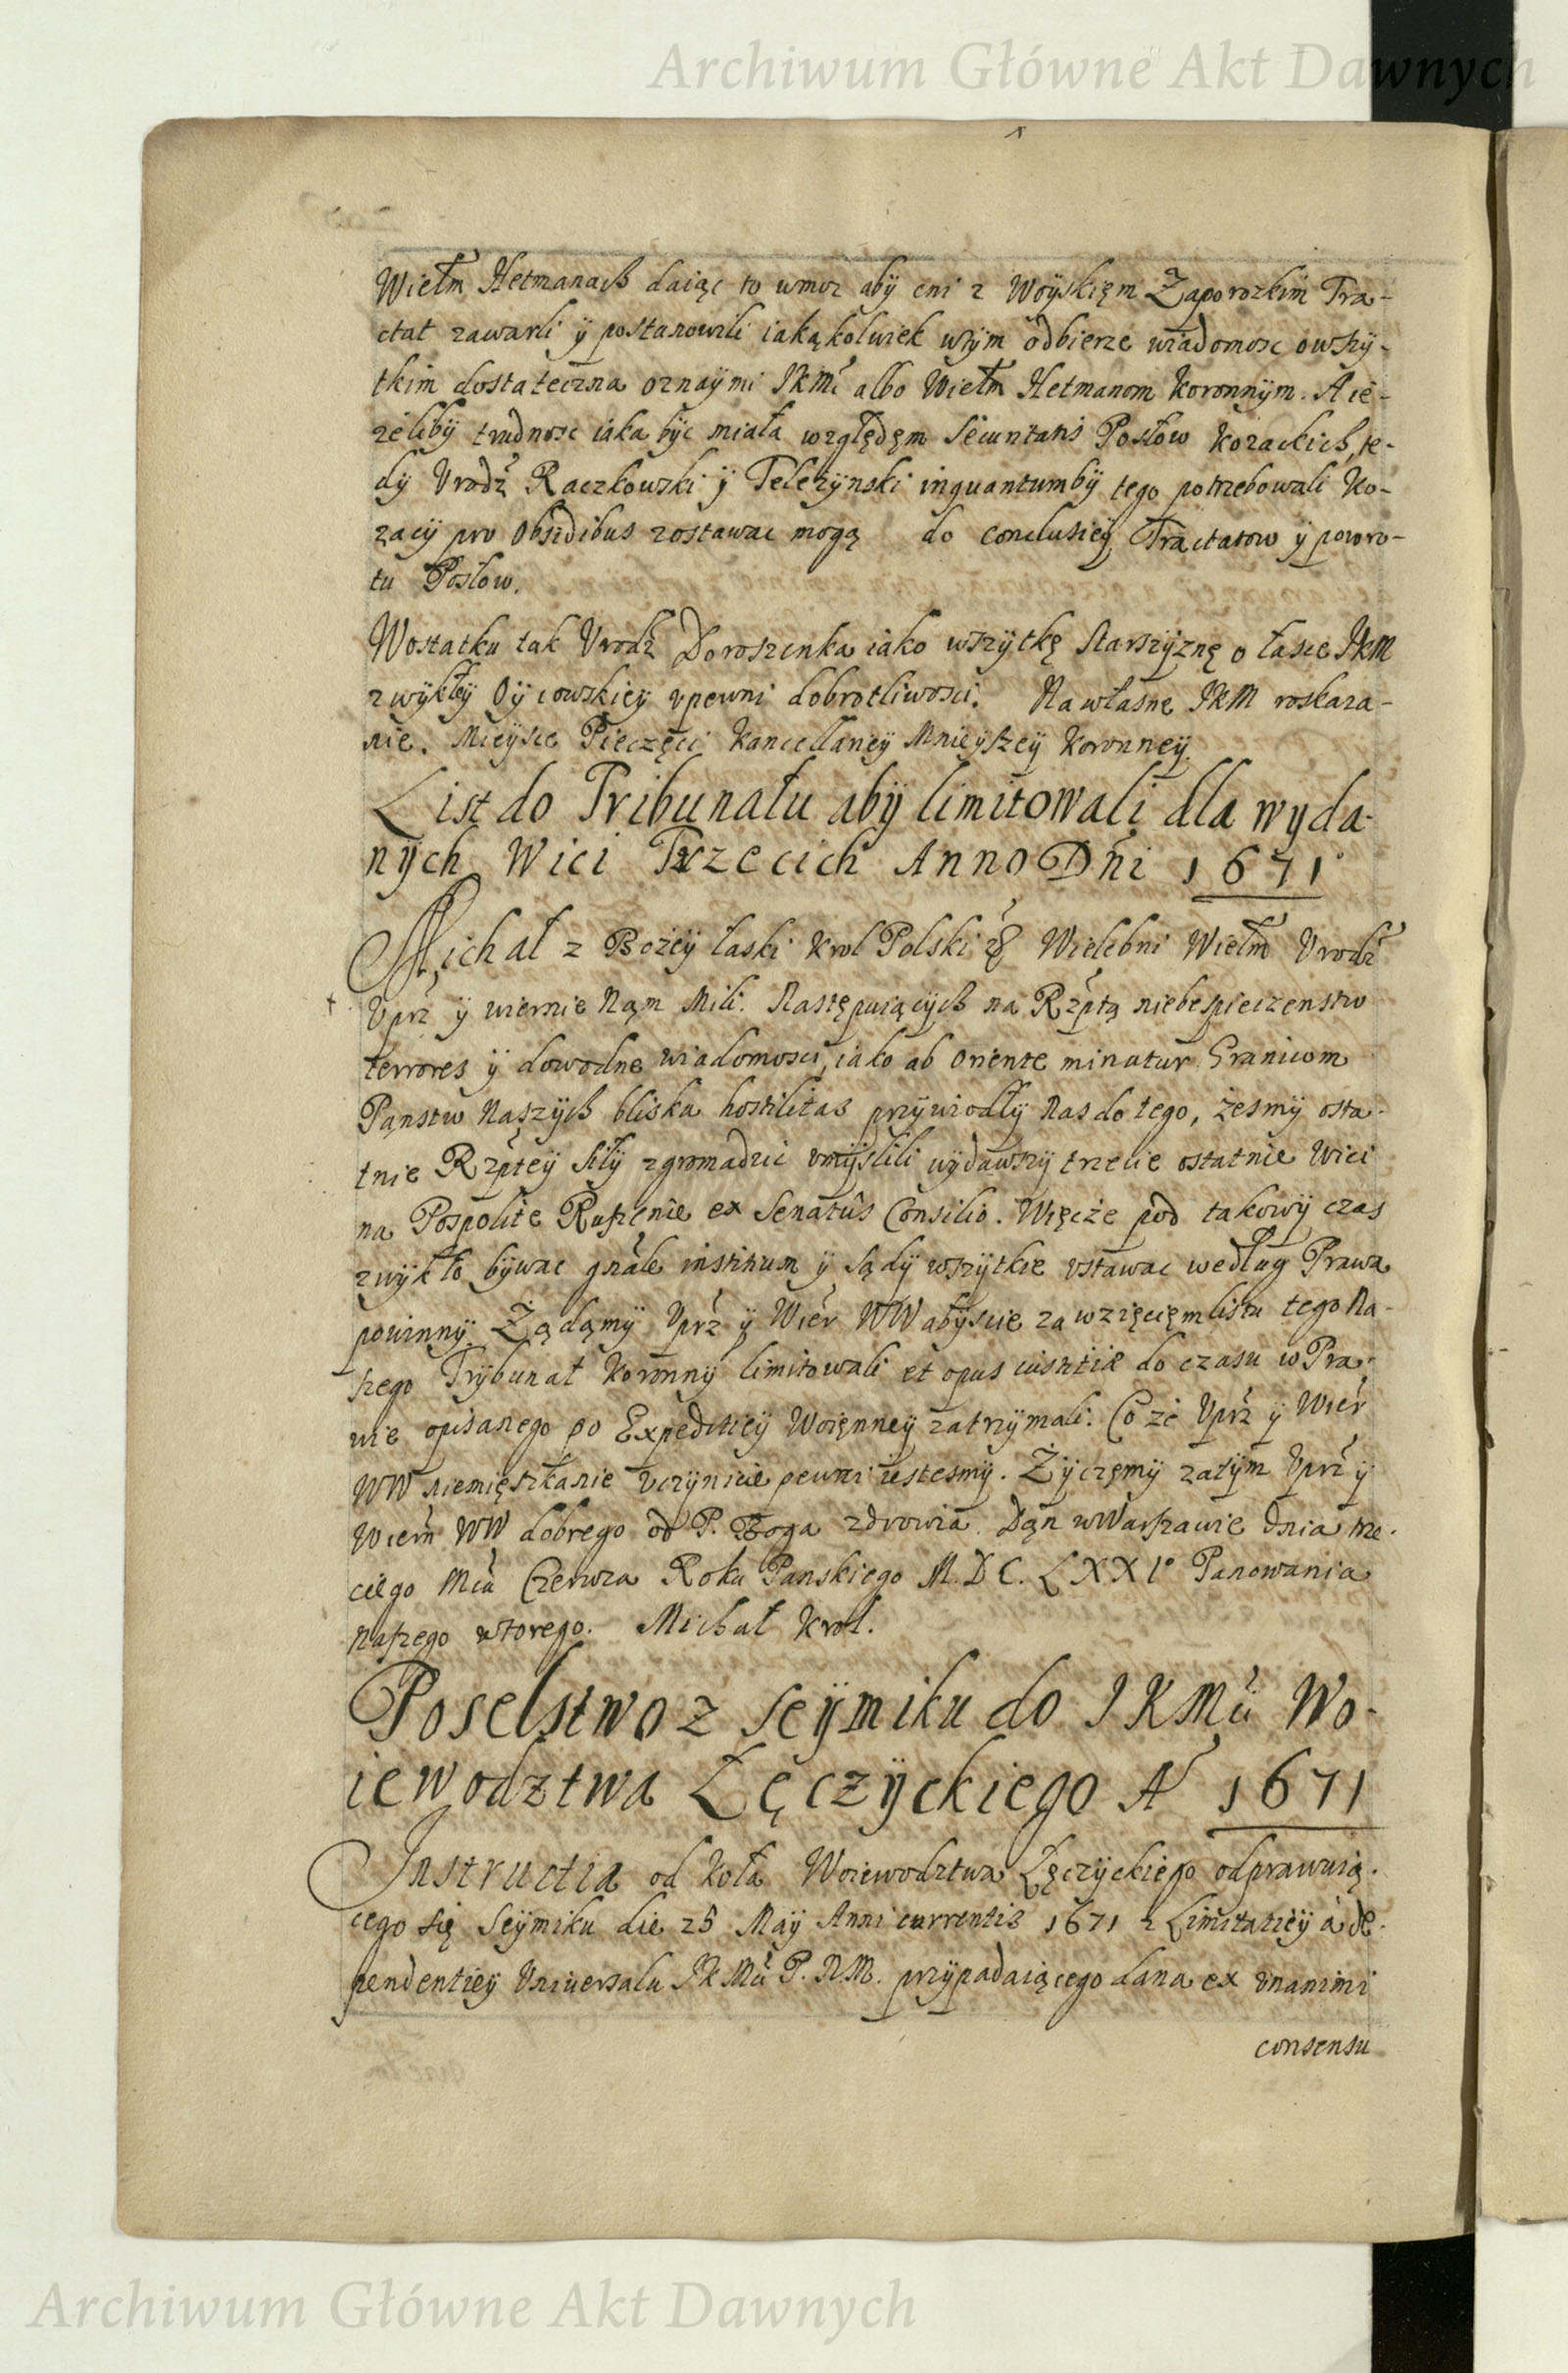 Archiwum Główne Akt Dawnych
Wielm Hetmanach daiąc to wmoc aby oni z Woÿskięm Zaporozkim Tra-
ctat zawarli ÿ postanowili iakąkolwiek wtym odbierze wiadomosc owszÿ-
tkim dostateczna oznaÿmi JKMći albo Wielm Hetmanom Koronnÿm. A ie-
żeliby trudnosc iaka bÿc miała względęm Securitatis Posłow Kozackich, te-
dÿ Urodź Raczkowski ÿ Telezÿnski inquantumbÿ tego potrzebowali Ko-
zacÿ pro Obsidibus zostawac mogą do Conclusieÿ Tractatow ÿ powro-
tu Posłow.
Wostatku tak Urodz Doroszenka iako wszÿtkę Starszÿznę o łasce JKM
zwÿkłeÿ Oÿcowskieÿ upewni dobrotliwosci. Na własne JKM roskaza-
nie. Mieÿsce Pieczęci Kancellarieÿ Mnieÿszeÿ Koronneÿ.
List do Tribunału abÿ limitowali dla wyda-
nÿch Wici Trzecich Anno Dńi 1671
Michał z Bożeÿ łaski Krol Polski &c Wielebni Wielm Urodź
Uprź ÿ wiernie Nąm Mili. Następuiącÿch na Rzptą niebespieczenstw
terrores ÿ dowodne wiadomosci, iako ab Oriente minatur Granicom
Pąnstw Naszÿch bliska hostilitas przÿwiodłÿ Nas do tego, żesmÿ osta-
tnie Rzpteÿ siłÿ zgromadzic umÿslili wÿdawszÿ trzecie ostatnie Wici
na Pospolite Ruszęnie ex Senatûs Consilio. Więcże pod takowÿ czas
zwÿkło bÿwac gnãle iustitium ÿ sądÿ wszÿtkie ustawac według Prawa
powinnÿ. Żądąmÿ Uprź ÿ Wiér WW abÿscie za wzięcięm listu tego Na-
szego Trÿbunał Koronnÿ limitowali et opus iustitiæ do czasu w Pra-
wie opisanego po Expediticÿ Woięnneÿ zatrzÿmali. Co że Uprź ÿ Wiér
WW niemięszkanie uczÿnicie pewni iestesmÿ. Żÿczęmÿ zatÿm Uprź ÿ
Wierń WW dobrego od P. Boga zdrowia. Dąn wWarszawie dnia trze-
ciego Mca Czerwca Roku Panskiego M.DC.LXXI° Panowania
naszego wtorego. Michał Krol.
Poselstwo z Seÿmiku do JKMći Wo-
iewodztwa Łęczÿckiego A° 1671
Instructia od Koła Woiewodztwa Łęczÿckiego odprawuią-
cego się Seÿmiku die 25 Maÿ Anni currentis 1671 z Limitatieÿ à de-
pendentieÿ Uniwersału JKMći P.N.M. przÿpadaiącego dana ex unanimi
consensu
Archiwum Główne Akt Dawnych